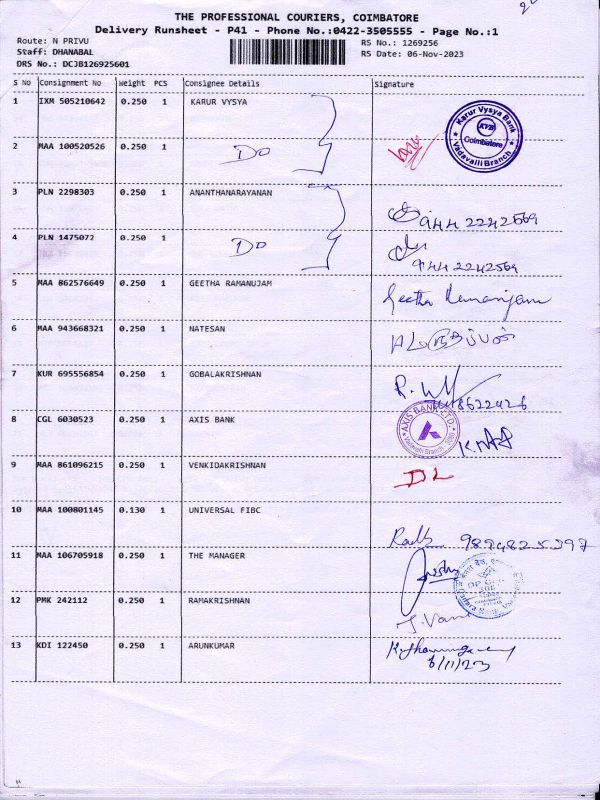 THE PROFESSIONAL COURIERS, COIMBATORE
Delivery Runsheet - P41 - Phone No.:0422-3505555 - Page No.:1
Route: N PRIVU RS No.: 1269256
Staff: DHANABAL RS Date: 06-Nov-2023
DRS No.: DCJB126925601
S No Consignment No Weight PCS Consignee Details Signature
1 IXM 505210642 0.250 1 KARUR VYSYA
Karur Vysya Bank
KVB
Coimbatore
Vadavalli Branch
2 MAA 100520526 0.250 1 Do
3 PLN 2298303 0.250 1 ANANTHANARAYANAN
944 2242569
4 PLN 1475072 0.250 1 Do
944 2242569
5 MAA 862576649 0.250 1 GEETHA RAMANUJAM Geetha Ramanujam
6 MAA 943668321 0.250 1 NATESAN
7 KUR 695556854 0.250 1 GOBALAKRISHNAN
8 CGL 6030523 0.250 1 AXIS BANK
AXIS BANK LTD.
Vadavalli Branch
9 MAA 861096215 0.250 1 VENKIDAKRISHNAN DL
10 MAA 100801145 0.130 1 UNIVERSAL FIBC
9894825397
11 MAA 106705918 0.250 1 THE MANAGER
12 PMK 242112 0.250 1 RAMAKRISHNAN
13 KDI 122450 0.250 1 ARUNKUMAR
6/11/23